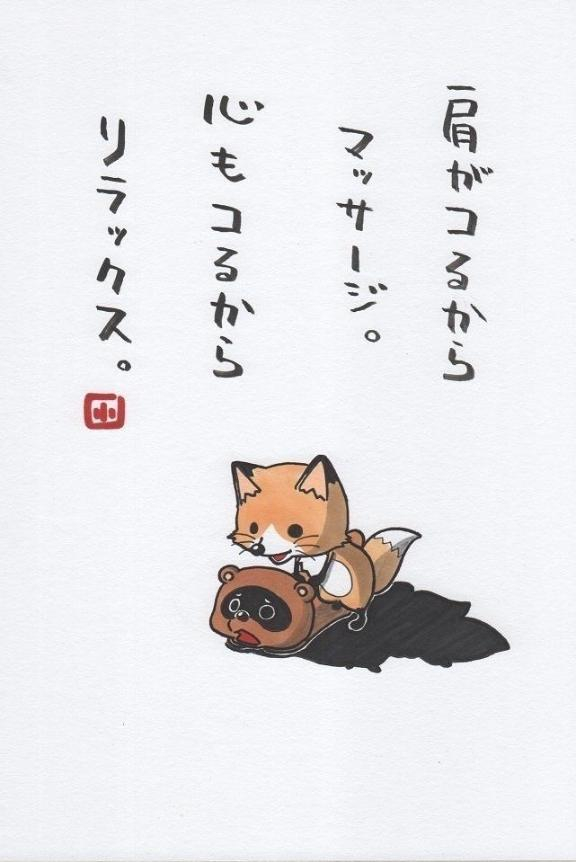 肩がコるから
マッサージ。
心もコるから
リラックス。